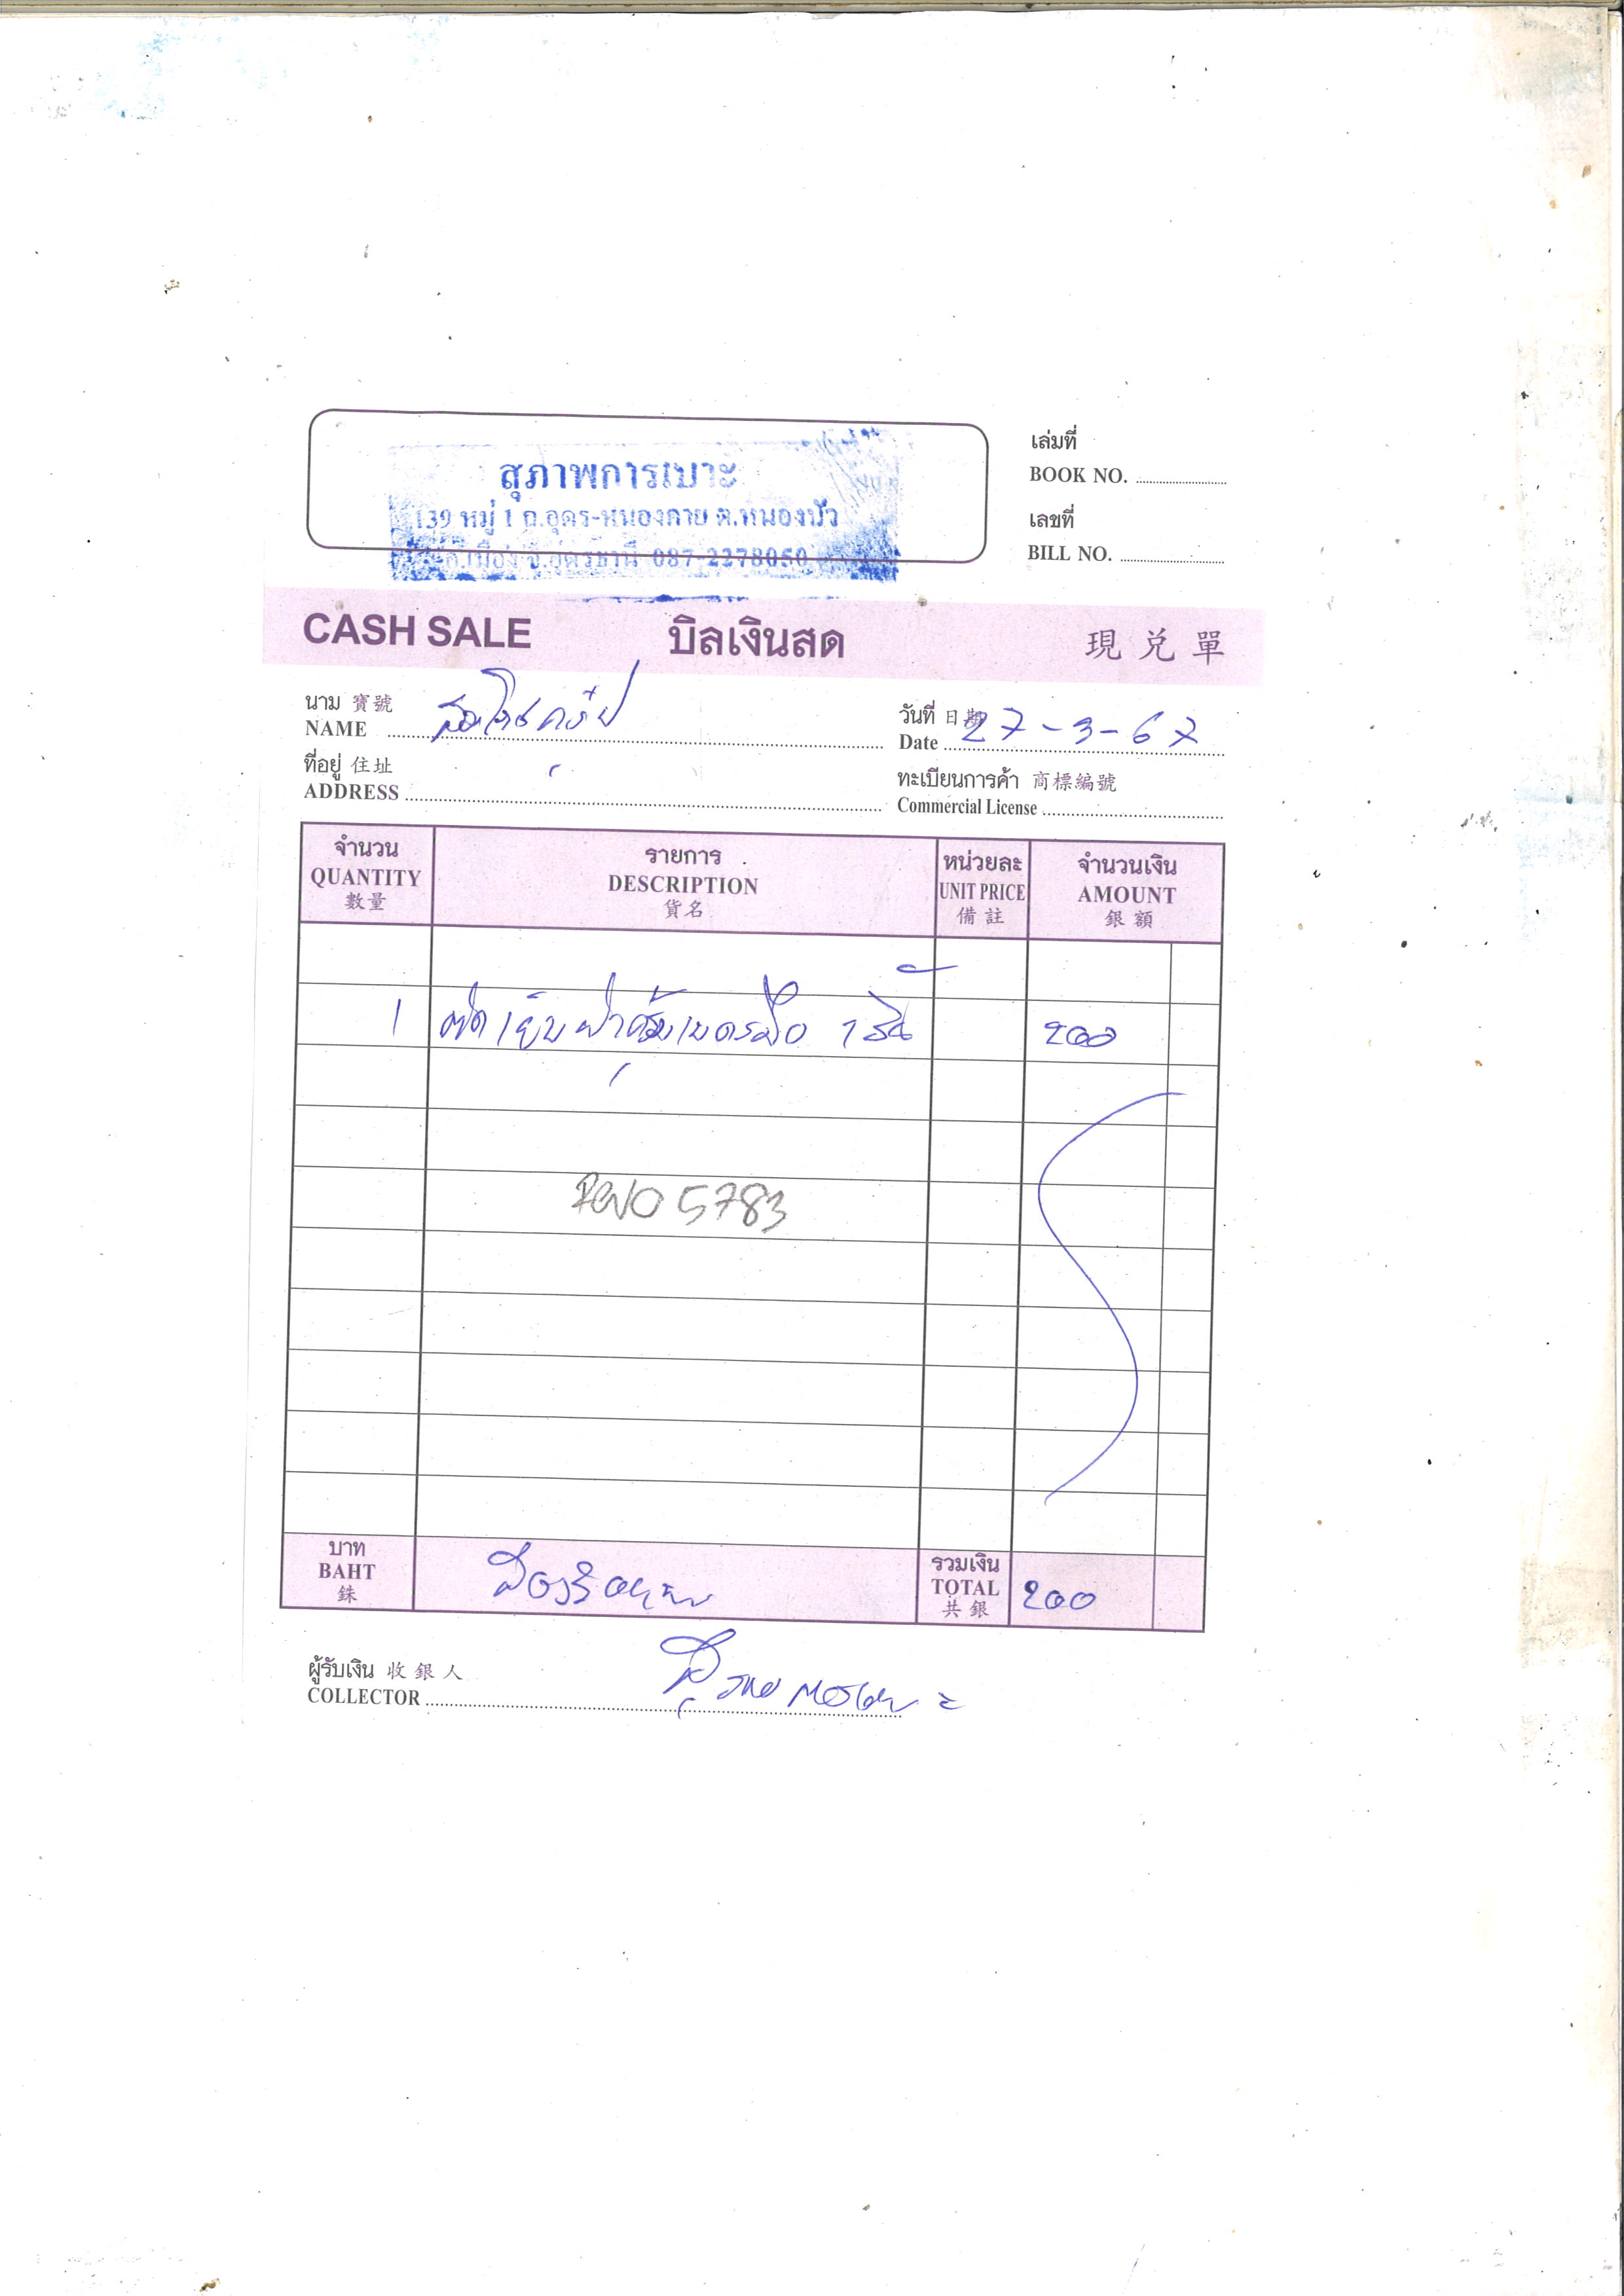 สุภาพการเบาะ
139 หมู่ 1 ถ.อุดร-หนองคาย ต.หนองบัว
อ.เมือง จ.อุดรธานี 087-2278050
เล่มที่
BOOK NO.
เลขที่
BILL NO.
CASH SALE บิลเงินสด 現兑單
นาม 寶號
NAME
วันที่ 日期
Date 27-3-67
ที่อยู่ 住址
ADDRESS
ทะเบียนการค้า 商標編號
Commercial License
จำนวน รายการ หน่วยละ จำนวนเงิน
QUANTITY DESCRIPTION UNIT PRICE AMOUNT
數量 貨名 備註 銀額
1 ตัดเย็บผ้าคลุม 1 ชิ้น 200
REVO 5783
บาท สองร้อยบาท รวมเงิน
BAHT TOTAL 200
銖 共銀
ผู้รับเงิน 收銀人
COLLECTOR